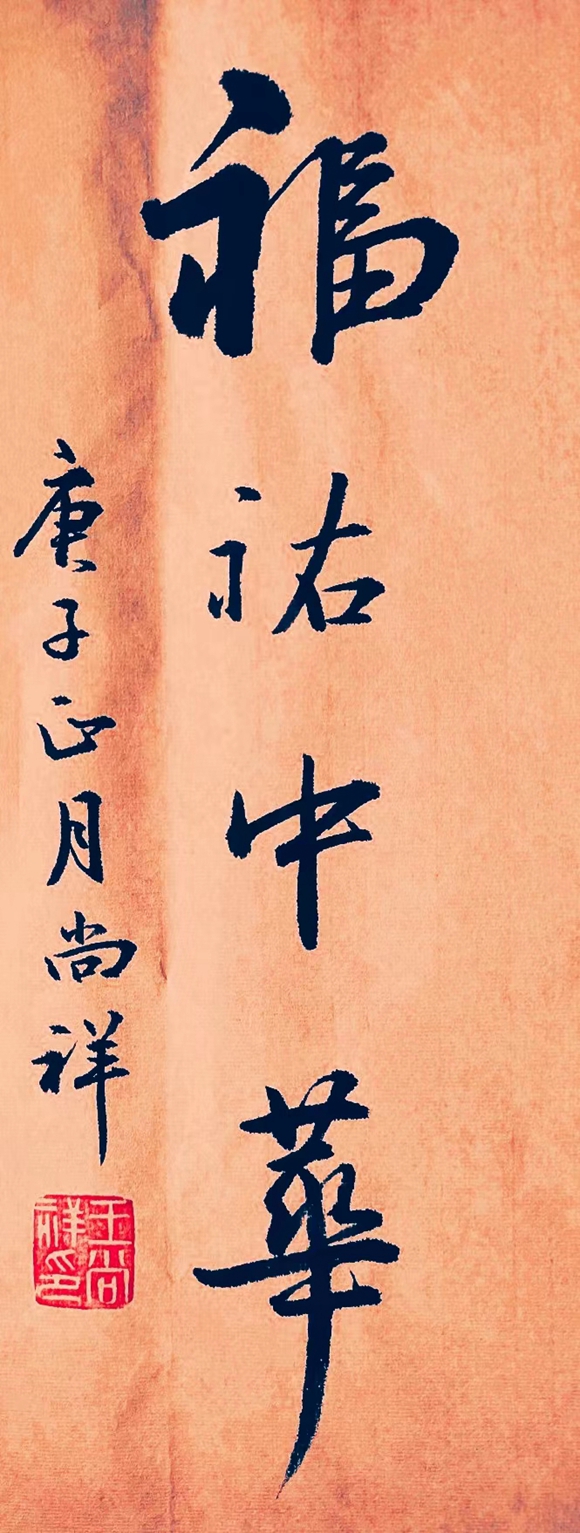 福祐中華
庚子正月尚祥
王尚祥印